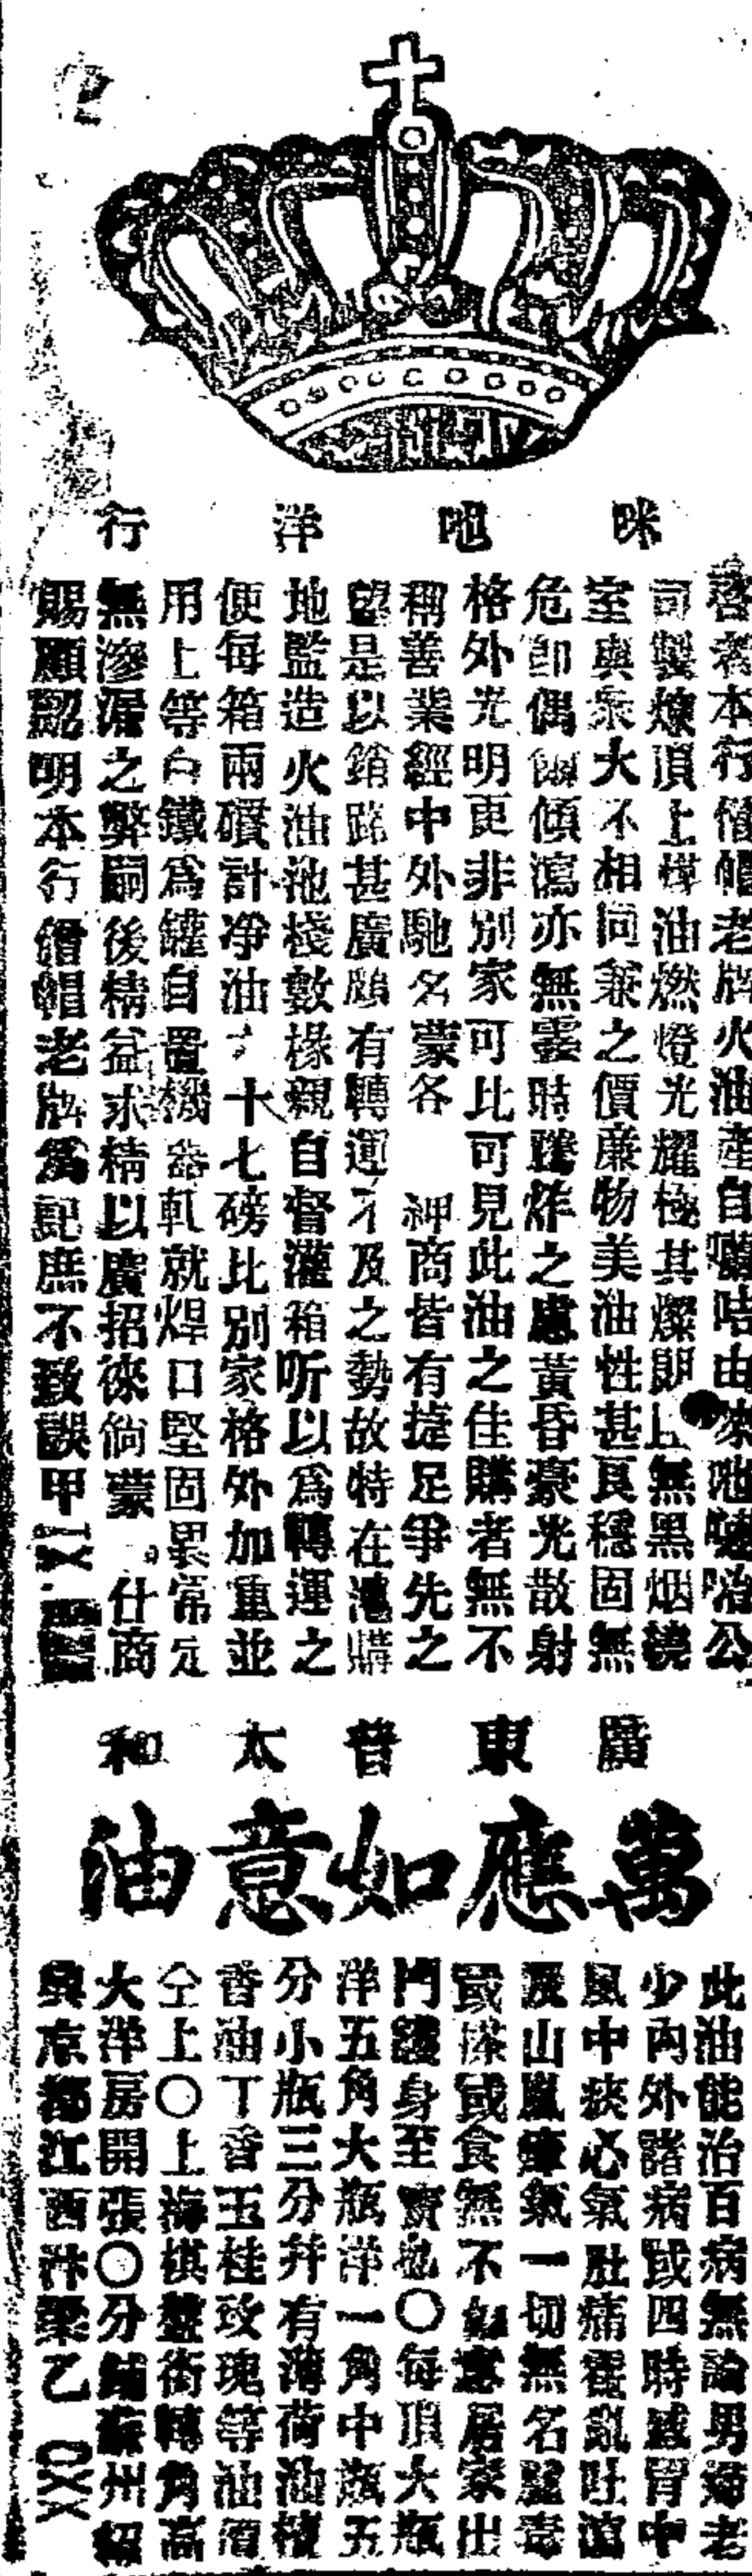 咪吔洋行
啓者本行僧帽老牌火油產自由公
司製煉頂上煤油燃燈光耀極其燦朗且無黑烟繞
室與衆大不相同兼之價廉物美油性甚良穩固無
危卽偶爾傾瀉亦無霎時騰炸之慮黃昏豪光散射
格外光明更非別家可比可見此油之佳購者無不
稱善業經中外馳名蒙各　紳商皆有捷足爭先之
望是以銷路甚廣頗有轉運不及之勢故特在滬購
地監造火油池棧數椽親自督灌箱听以爲轉運之
便每箱兩礶計淨油六十七磅比別家格外加重並
用上等白鐵爲罐自置機器軋就焊口堅固異常定
無滲漏之弊嗣後精益求精以廣招徠倘蒙　仕商
賜顧認明本行僧帽老牌爲記庶不致誤甲
廣東普太和
萬應如意油
此油能治百病無論男婦老
少內外諸病或四時感冒中
風中痰心氣肚痛霍亂吐瀉
及山嵐瘴氣一切無名腫毒
或搽或食無不如意居家出
門護身至寶也〇每頂大瓶
洋五角大瓶洋一角中瓶五
分小瓶三分幷有薄荷油檀
香油丁香玉桂玫瑰等油價
仝上〇上海棋盤街轉角高
大洋房開張〇分鋪蘇州紹
興京都江西汴梁乙